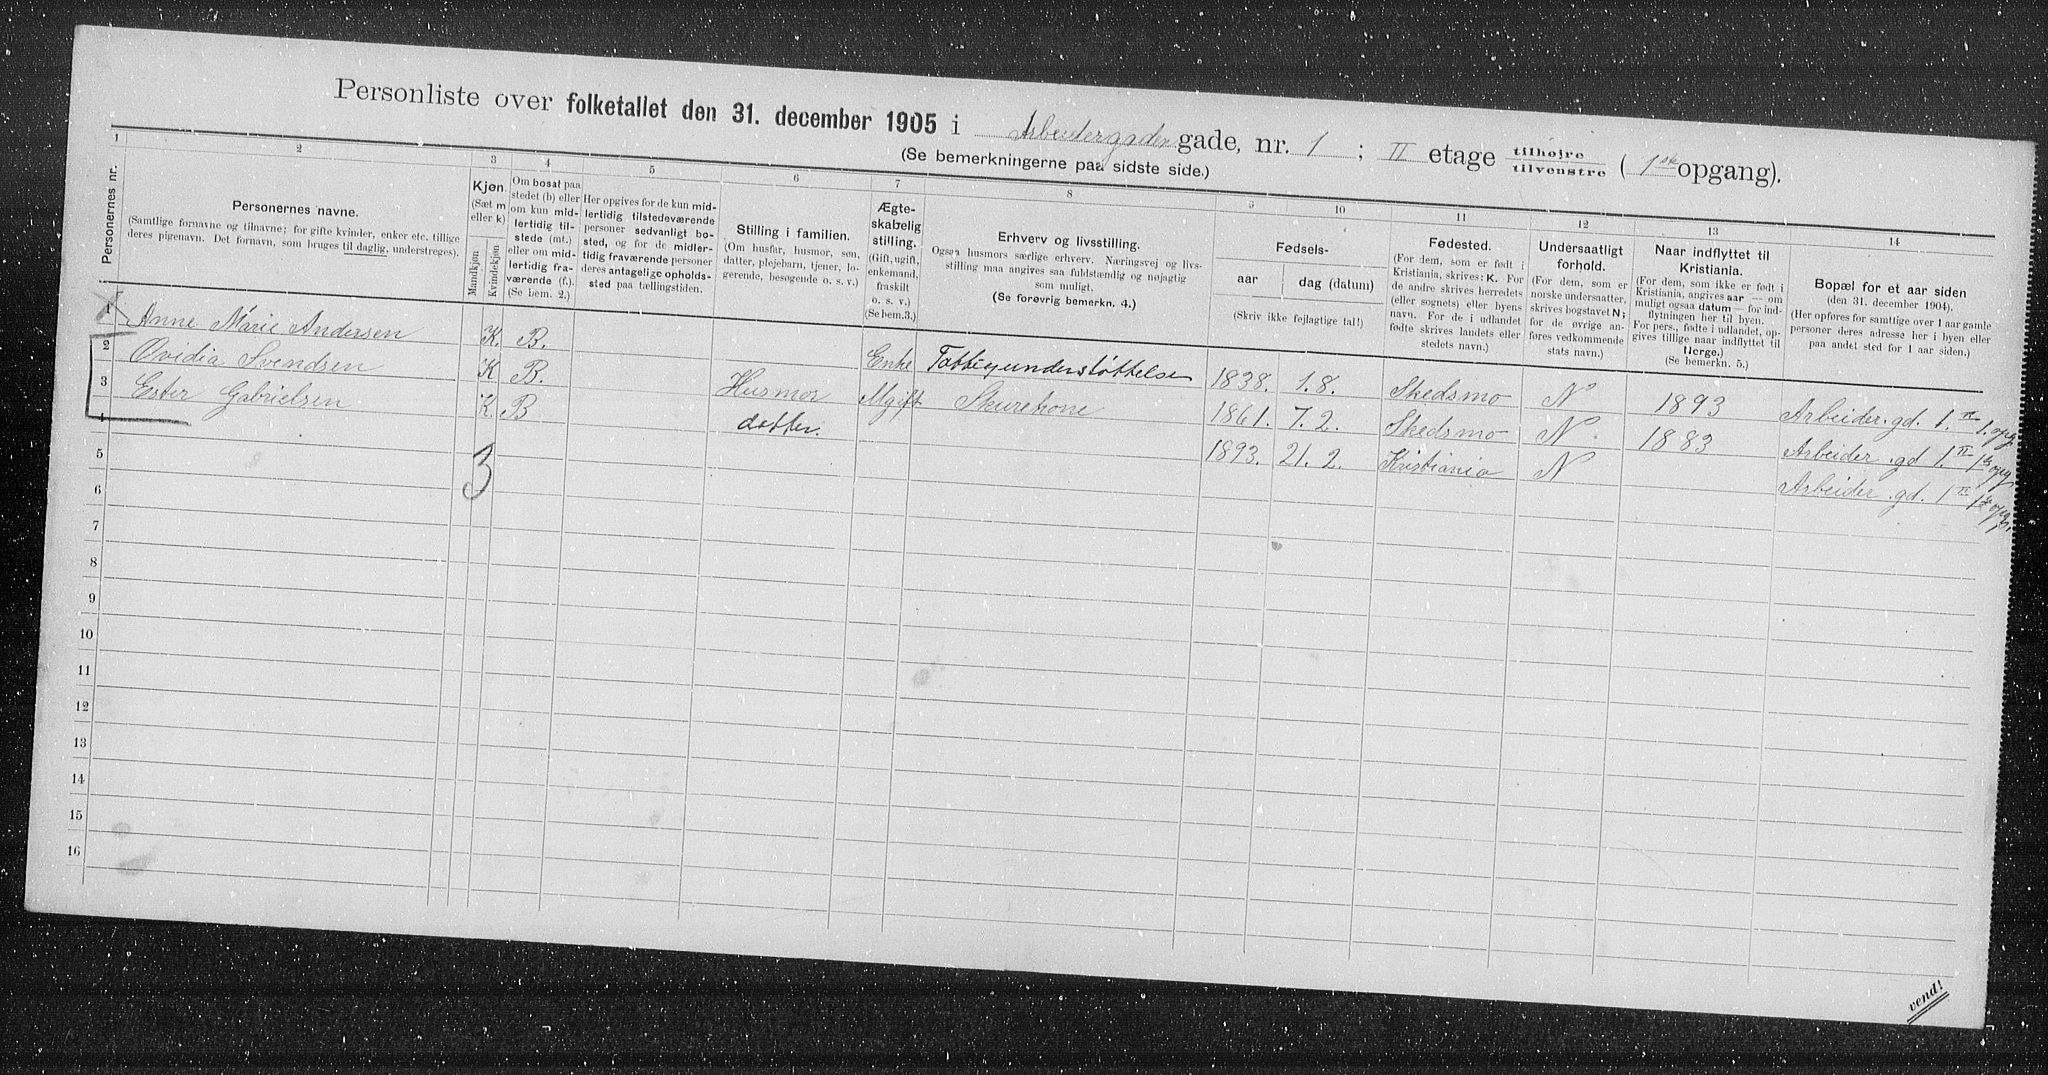 Personliste over folketallet den 31. december 1905 i Arbeidergaden gade, nr. 1 ; II etage tilhøjre tilvenstre ( 1ste opgang).
(Se bemerkningerne paa sidste side.)
1 2 3 4 5 6 7 8 9 10 11 12 13 14
Personernes nr.
Personernes navne.
(Samtlige fornavne og tilnavne; for gifte kvinder, enker etc. tillige
deres pigenavn. Det fornavn, som bruges til daglig, understreges).
Kjøn.
(Sæt m
eller k)
Mandkjøn
Kvindekjøn
Om bosat paa
stedet (b) eller
om kun mid-
lertidig til-
stede (mt.)
eller om mid-
lertidig fra-
værende (f.).
(Se bem. 2.)
Her opgives for de kun mid-
lertidig tilstedeværende
personer sedvanligt bo-
sted, og for de midler-
tidig fraværende personer
deres antagelige opholds-
sted paa tællingstiden.
Stilling i familien.
(Om husfar, husmor, søn,
datter, plejebarn, tjener, lo-
gerende, besøgende o. s. v.)
Ægte-
skabelig
stilling.
(Gift, ugift,
enkemand,
fraskilt
o. s. v.)
(Se bem.3.)
Erhverv og livsstilling.
Ogsaa husmors særlige erhverv. Næringsvej og livs-
stilling maa angives saa fuldstændig og nøjagtig
som muligt.
(Se forøvrig bemerkn. 4.)
Fødsels-
aar dag (datum)
(Skriv ikke fejlagtige tal!)
Fødested.
(For dem, som er født i
Kristiania, skrives: K. For
de andre skrives herredets
(eller sognets) eller byens
navn. For de i udlandet
fødte skrives landets eller
stedets navn.)
Undersaatligt
forhold.
(For dem, som er
norske undersaatter,
skrives bogstavet N;
for de øvrige an-
føres vedkommende
stats navn.)
Naar indflyttet til
Kristiania.
(For dem, som ikke er født i
Kristiania, angives aar — om
muligt ogsaa datum — for ind-
flytningen her til byen.
For pers., fødte i udlandet, op-
gives tillige naar indflyttet til
Norge.)
(Se bemerkn. 5.)
Bopæl for et aar siden
(den 31. december 1904).
(Her opføres for samtlige over 1 aar gamle
personer deres adresse her i byen eller
paa andet sted for 1 aar siden.)
1 Anne Marie Andersen K. B. Enke Fattigunderstøttelse 1838. 1.8. Skedsmo N 1893 Arbeider.gd. 1. II 1. opg.
2 Ovidia Svendsen K B. Husmor Ugift Skurekone 1861. 7.2. Skedsmo N. 1883 Arbeider.gd 1. II 1ste opg
3 Ester Gabrielsen K. B datter. 1893. 21.2. Kristiania N Arbeider.gd. 1 II 1ste opg.
4
5
3
6
7
8
9
10
11
12
13
14
15
16
vend!